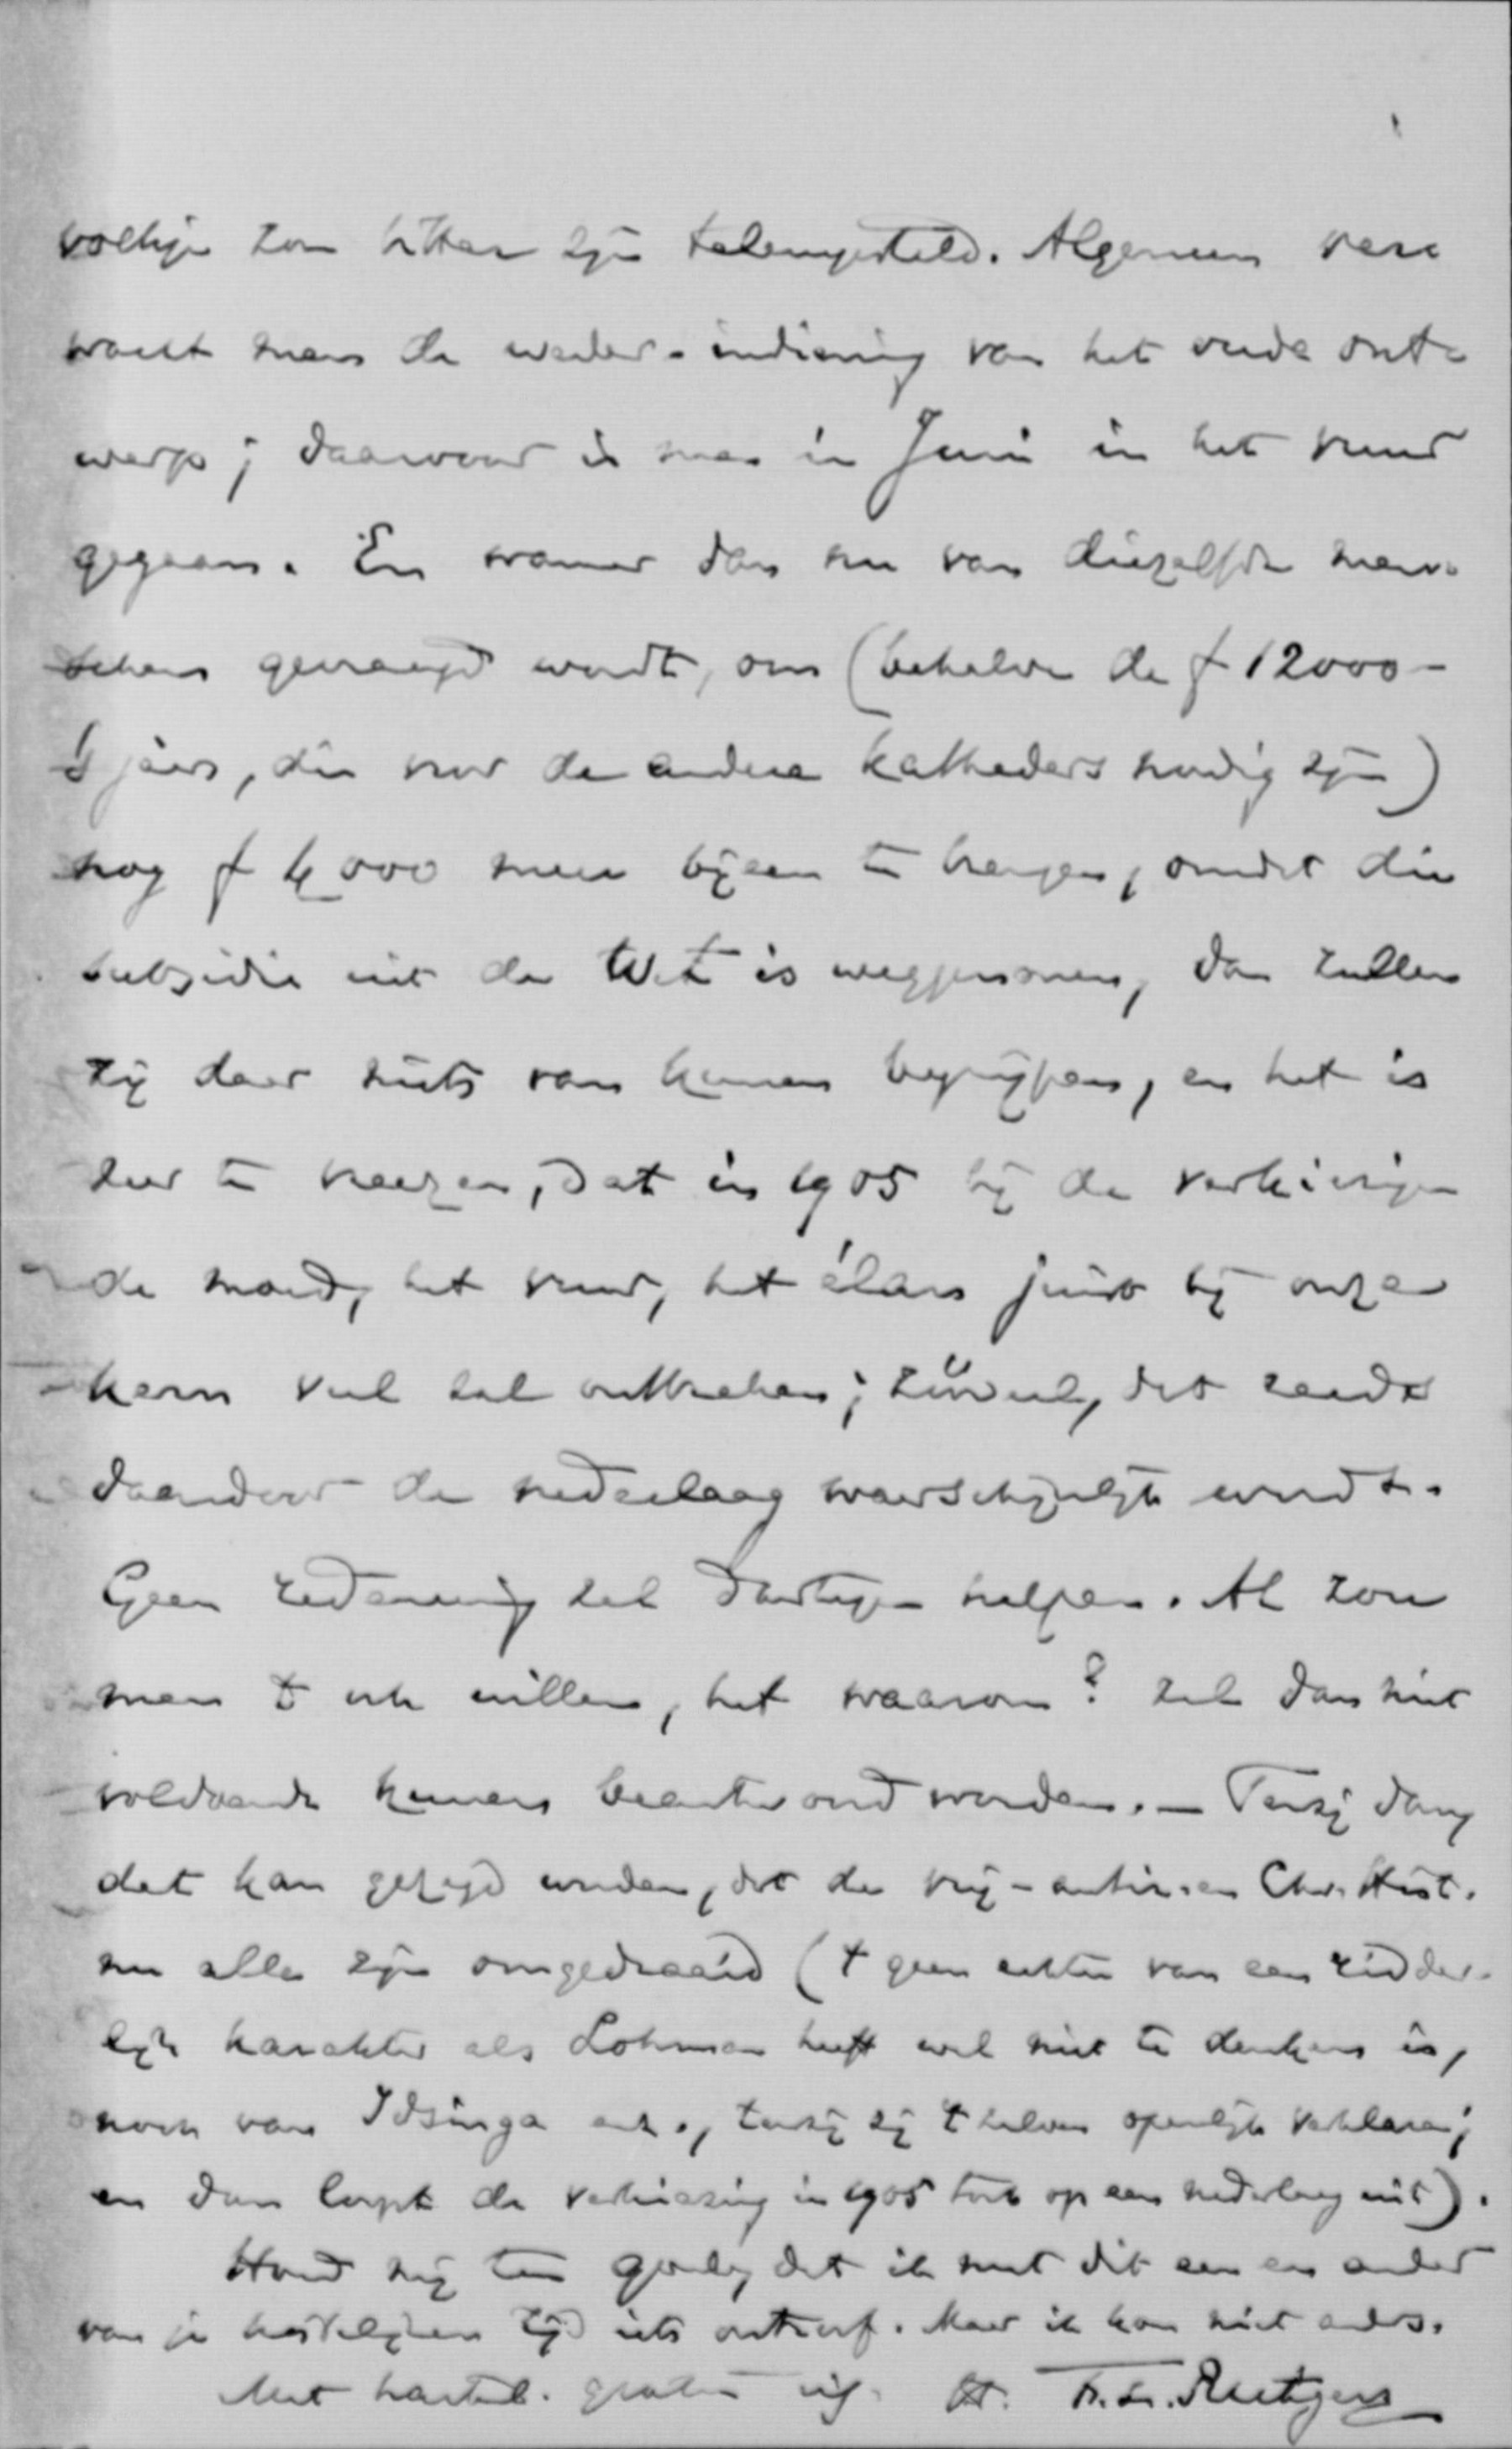 volkje zou bitter zijn teleurgesteld. Algemeen ver=
wacht men de weder-indiening van het oude ont=
werp; daarvoor is men in Juni in het vuur
gegaan. En wanneer dan nu van diezelfde men=
schen gevraagd wordt, om (behalve de f 12000-
's jaars, die voor de andere katheders noodig zijn)
nog f 4000 meer bijeen te brengen, omdat die
subsidie uit de Wet is weggenomen, dan zullen
zij daar niets van kunnen begrijpen, en het is
zeer te vreezen, dat in 1905 bij de verkiezingen
de moed, het vuur, het élan juist bij onze
kern veel zal ontbreken; zóóveel, dat reeds
daardoor de nederlaag waarschijnlijk wordt.
Geen redeneering zal daartegen helpen. Al zou
men 't ook willen, het waarom? zal dan niet
voldoende kunnen beantwoord worden. — Tenzij dan,
dat kan gezegd worden, dat de vrij-antirr. en Chr. Hist.
nu alle zijn omgedraaid ('t geen echter van een ridder-
lijk karakter als Lohman heeft wel niet te denken is,
noch van Idsinga enz., tenzij zij 't zelven openlijk verklaren;
en dan loopt de verkiezing in 1905 toch op een nederlaag uit).
Houd mij ten goede, dat ik met dit een en ander
van je kostelijken tijd iets ontroof. Maar ik kon niet anders.
Met hartel. groeten tt. F.L. Rutgers